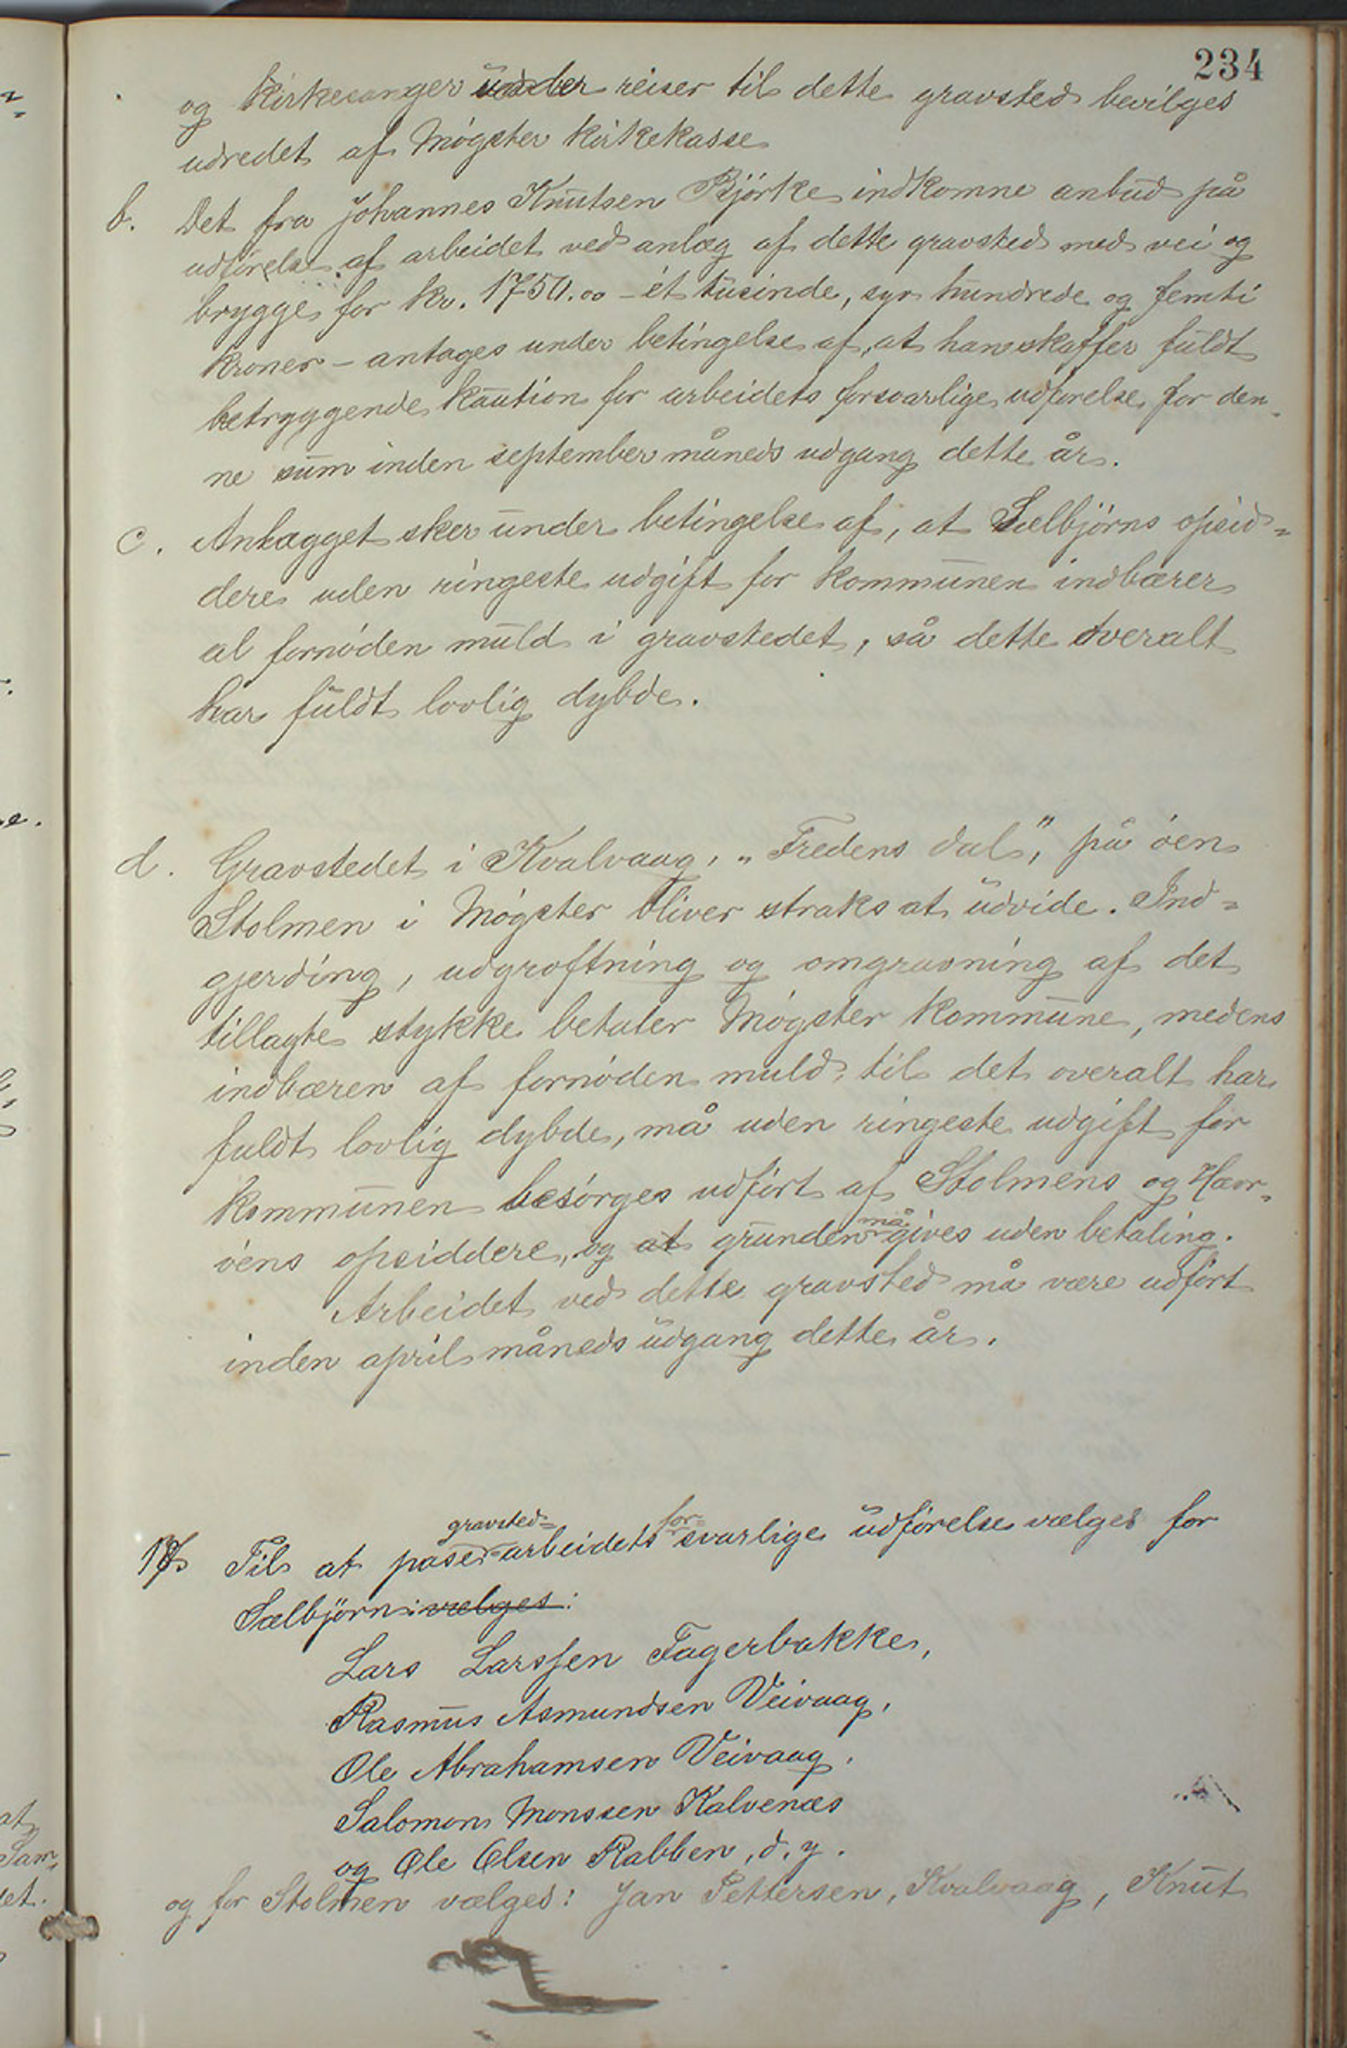 234
og kirkesanger under reiser til dette gravsted bevilges
udredet af Møgster kirkekasse
b. Det fra Johannes Knutsen Bjørke indkomne anbud på
udførelse af arbeidet ved anlæg af dette gravsted med vei og
brygge for kr. 1750.00 – ét tusinde, syv hundrede og femti
kroner – antages under betingelse af, at han skaffer fuldt
betryggende kaution for arbeidets forsvarlige udførelse for den-
ne sum inden september måneds udgang dette år.
c. Anlægget sker under betingelse af, at Sælbjørns opsid=
dere uden ringeste udgift for kommunen indbærer
al fornøden muld i gravstedet, så dette overalt
har fuldt lovlig dybde.
d. Gravstedet i Kvalvaag, „Fredens dal", på øen
Stolmen i Møgster bliver straks at udvide. Ind=
gjerding, udgrøftning og omgravning af det
tillagte stykke betaler Møgster kommune, medens
indbæren af fornøden muld, til det overalt har
fuldt lovlig dybde, må uden ringeste udgift for
kommunen besørges udført af Stolmens og Hær-
øens opsiddere, og at grunden må gives uden betaling.
Arbeidet ved dette gravsted må være udført
inden april måneds udgang dette år.
Til at påse gravsted= arbeidets for= svarlige udførelse vælges for
Sælbjørn: vælges:
Lars Larssen Fagerbakke,
Rasmus Asmundsen Veivaag,
Ole Abrahamsen Veivaag,
Salomon Monssen Kalvenæs
og Ole Olsen Rabben, d. y.
og for Stolmen vælges: Jan Pettersen, Kvalvaag, Knut